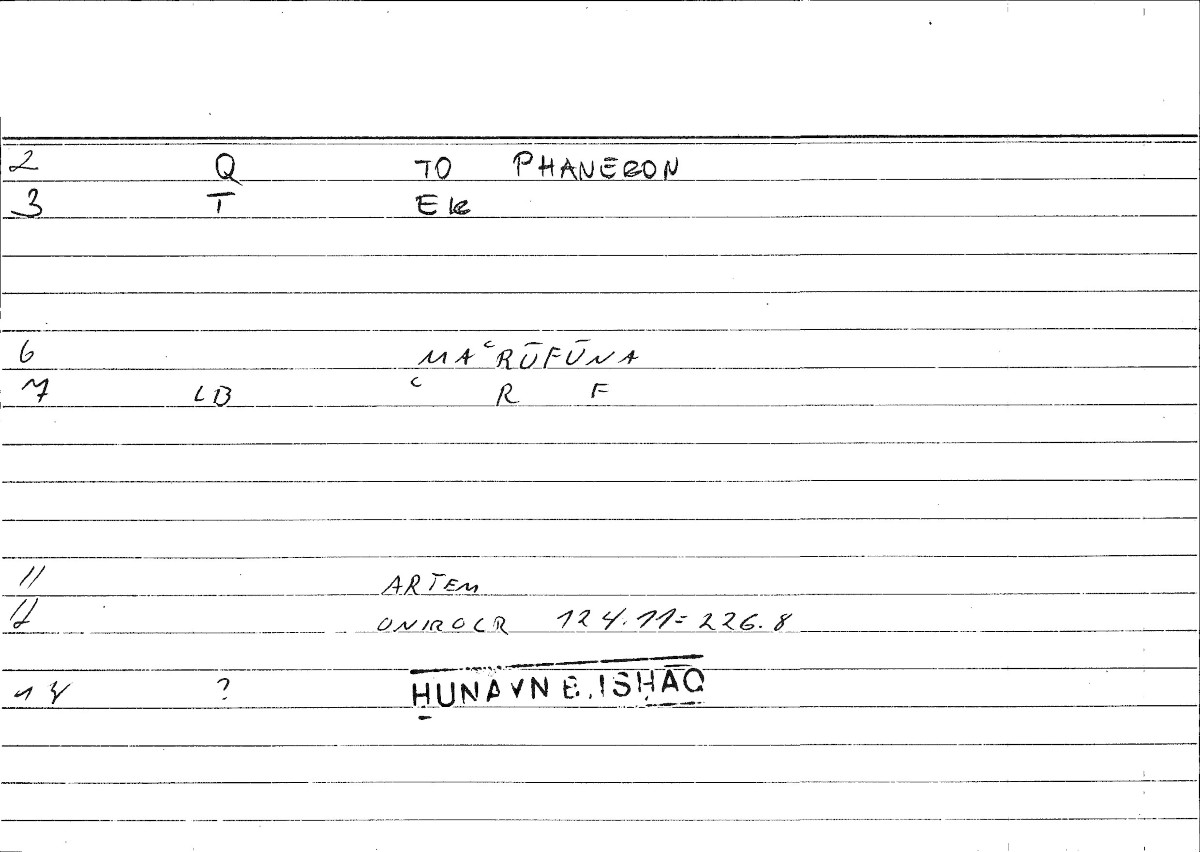 2 Q TO PHANERON
3 T Ek
6 MAʿRŪFŪNA
7 LB ʿ R F
11 ARTEM
12 ONIROCR 124.11=226.8
14 ? ḤUNAYN B. ISḤĀQ